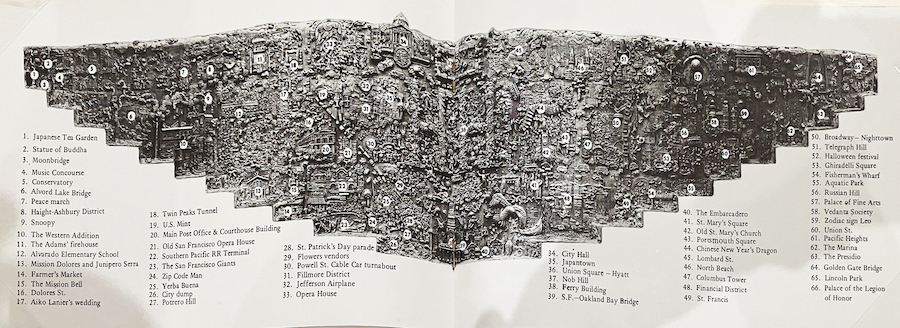 1. Japanese Tea Garden
2. Statue of Buddha
3. Moonbridge
4. Music Concourse
5. Conservatory
6. Alvord Lake Bridge
7. Peace march
8. Haight-Ashbury District
9. Snoopy
10. The Western Addition
11. The Adams' firehouse
12. Alvarado Elementary School
13. Mission Dolores and Junipero Serra
14. Farmer's Market
15. The Mission Bell
16. Dolores St.
17. Aiko Lanier's wedding
18. Twin Peaks Tunnel
19. U.S. Mint
20. Main Post Office & Courthouse Building
21. Old San Francisco Opera House
22. Southern Pacific RR Terminal
23. The San Francisco Giants
24. Zip Code Man
25. Yerba Buena
26. City dump
27. Potrero Hill
28. St. Patrick's Day parade
29. Flowers vendors
30. Powell St. Cable Car turnabout
31. Fillmore District
32. Jefferson Airplane
33. Opera House
34. City Hall
35. Japantown
36. Union Square - Hyatt
37. Nob Hill
38. Ferry Building
39. S.F.-Oakland Bay Bridge
40. The Embarcadero
41. St. Mary's Square
42. Old St. Mary's Church
43. Portsmouth Square
44. Chinese New Year's Dragon
45. Lombard St.
46. North Beach
47. Columbus Tower
48. Financial District
49. St. Francis
50. Broadway - Nighttown
51. Telegraph Hill
52. Halloween festival
53. Ghiradelli Square
54. Fisherman's Wharf
55. Aquatic Park
56. Russian Hill
57. Palace of Fine Arts
58. Vedanta Society
59. Zodiac sign Leo
60. Union St.
61. Pacific Heights
62. The Marina
63. The Presidio
64. Golden Gate Bridge
65. Lincoln Park
66. Palace of the Legion
of Honor